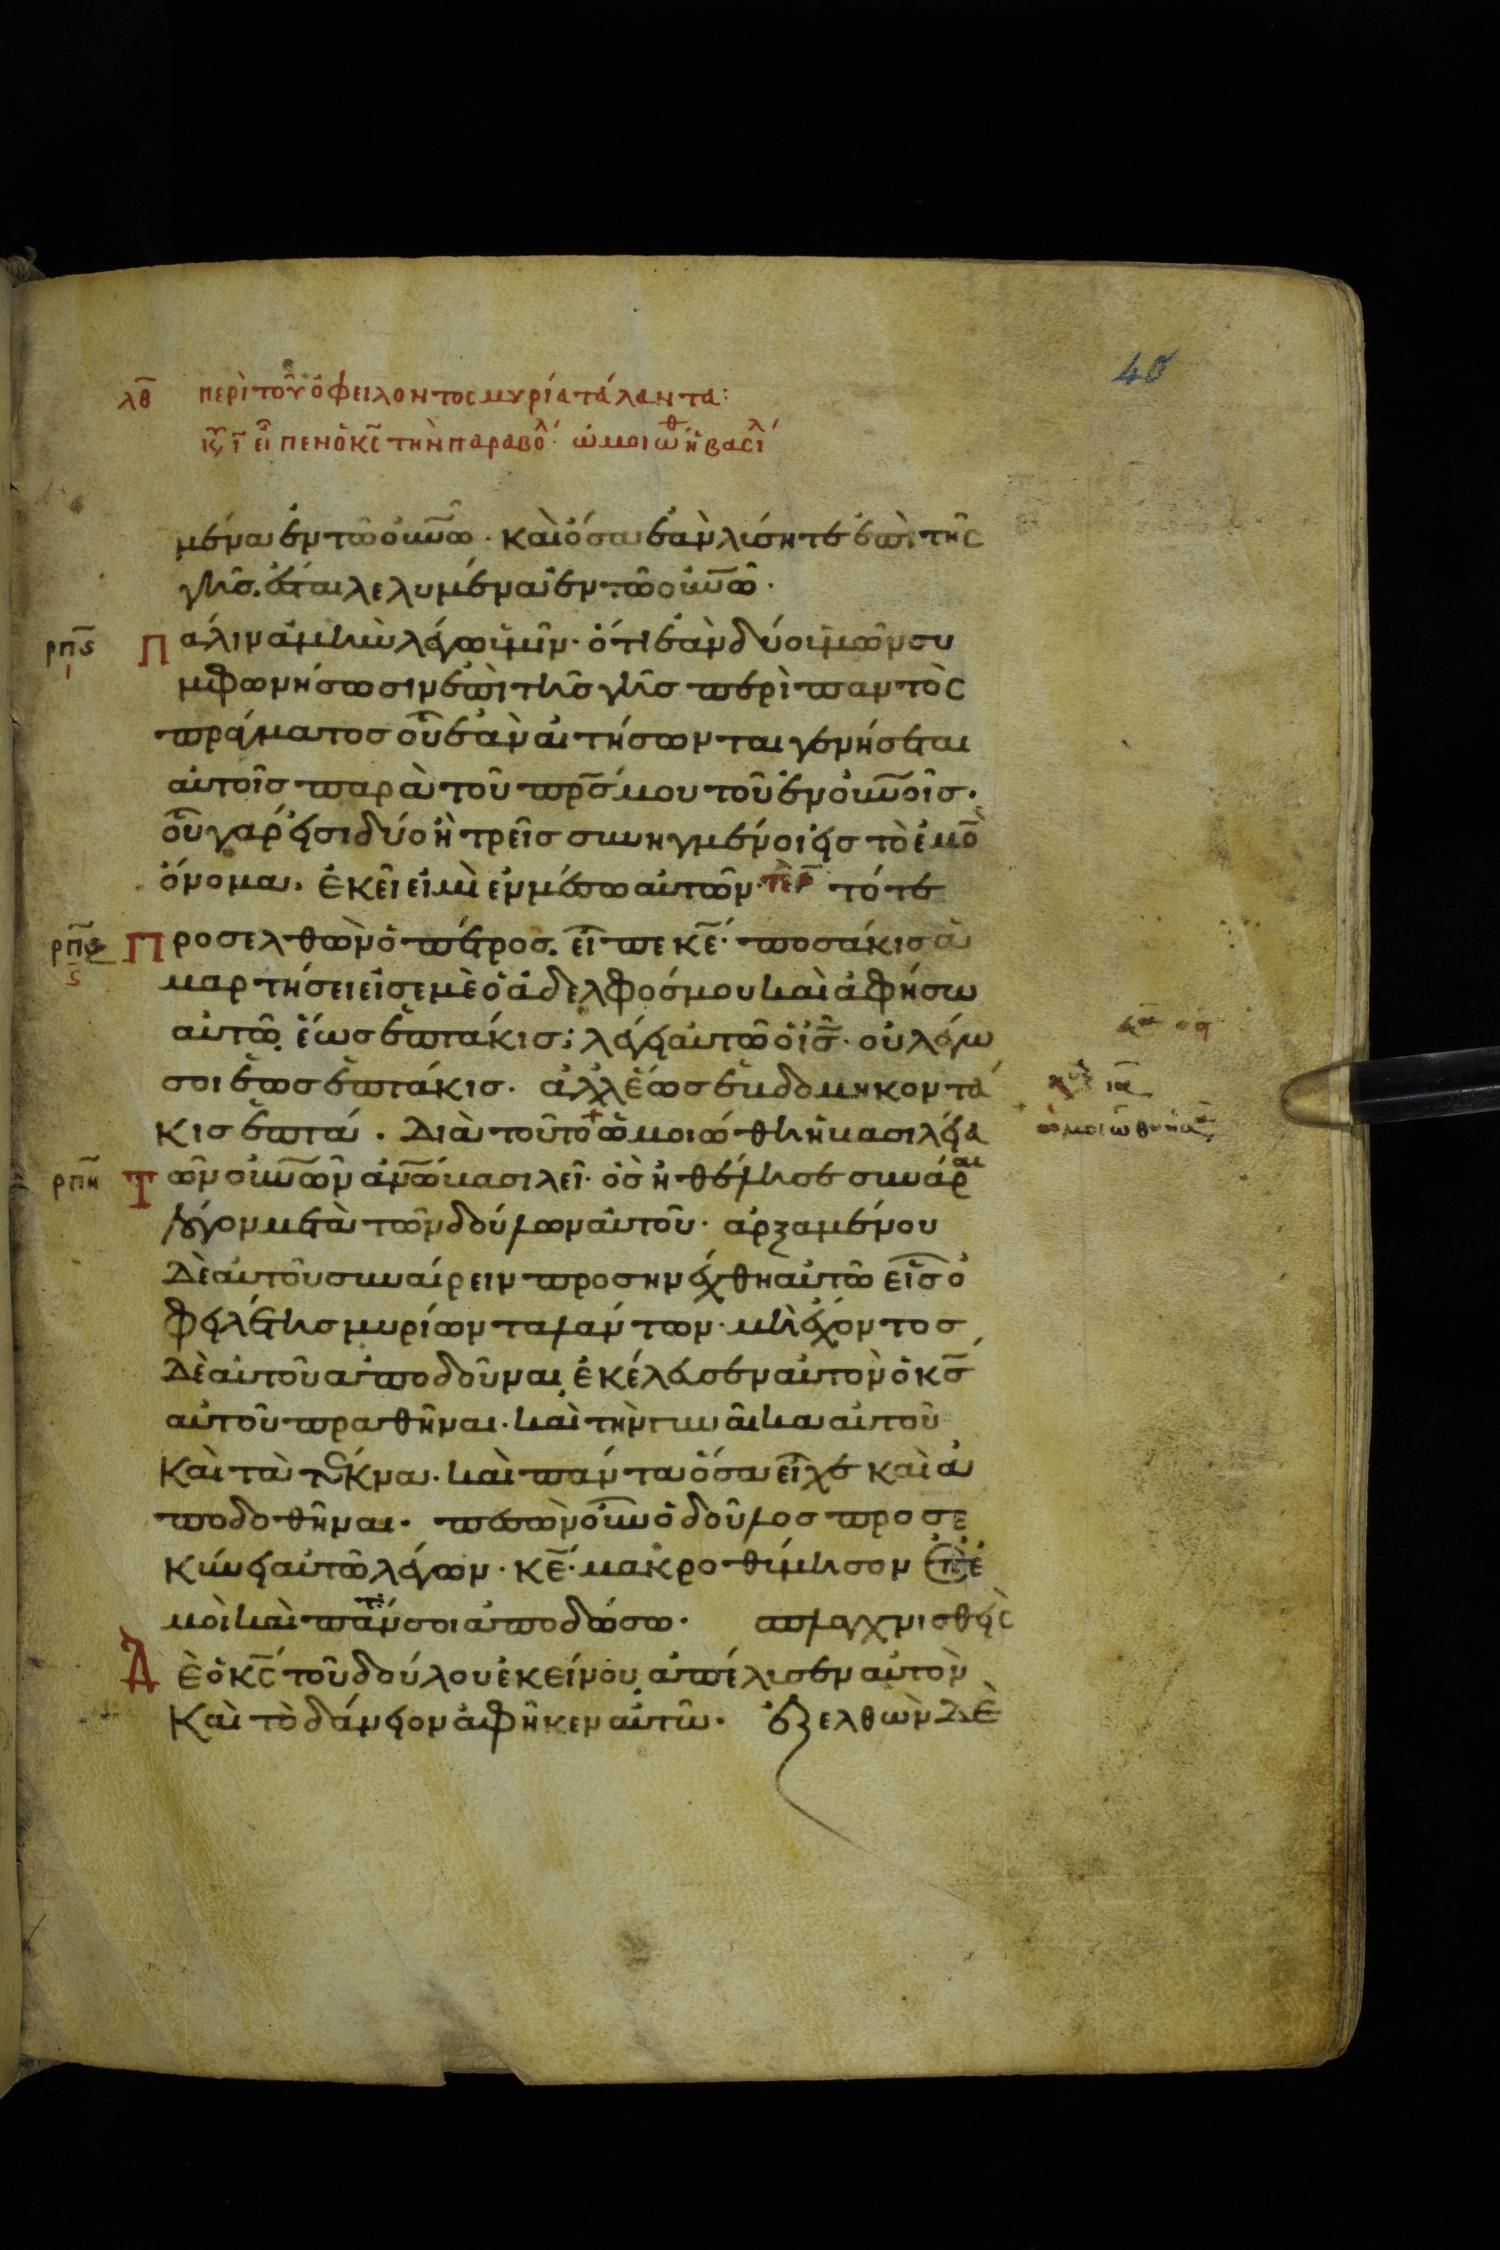 40
λθ περὶ τοῦ ὀφείλοντος μυρία τάλαντα:
εἶπεν ὁ κς τὴν παραβολ ὡμοιώθ ἡ βασιλ
μένα ἐν τῶ οὐνῶ· καὶ ὅσα ἐὰν λύσητε ἐπὶ τῆς
γῆς. ἔσται λελυμένα ἐν τῶ οὐνῶ·
ρπς Πάλιν ἀμὴν λέγω ὑμῖν· ὅτι ἐὰν δύο ὑμῶν συ
μφωνήσωσιν ἐπὶ τῆς γῆς περὶ παντὸς
πράγματος οὗ ἐὰν αἰτήσωνται γενήσεται
αὐτοῖς παρὰ τοῦ πρς μου τοῦ ἐν οὐνοῖς·
οὗ γάρ εἰσι δύο ἢ τρεῖς συνηγμένοι εἰς τὸ ἐμὸ
ὄνομα. ἐκεῖ εἰμὶ ἐν μέσω αὐτῶν· τότε
ρπζ Προσελθὼν ὁ πέτρος. εἶπε κε· ποσάκις ἁ
μαρτήσει εἰς ἐμὲ ὁ ἀδελφός μου καὶ ἀφήσω
αὐτῶ. ἕως ἑπτάκις; λέγει αὐτῶ ὁ ις· οὐ λέγω
σοι ἕως ἑπτάκις. ἀλλ ἕως ἑβδομηκοντά
κις ἑπτά. Διὰ τοῦτο ὡμοιώθη ἡ βασιλεία
ρπη Τῶν οὐνῶν ἀνῶ βασιλεῖ· ὃς ἠθέλησε συνάραι
λόγον μετὰ τῶν δούλων αὐτοῦ· ἀρξαμένου
Δὲ αὐτοῦ συναίρειν προσηνέχθη αὐτῶ εἷς ὀ
φειλέτης μυρίων ταλάντων· μὴ ἔχοντος
Δὲ αὐτοῦ ἀποδοῦναι, ἐκέλευσεν αὐτὸν ὁ κς
αὐτοῦ πραθῆναι· καὶ τὴν γυναῖκα αὐτοῦ
Καὶ τὰ τέκνα· καὶ πάντα ὅσα εἶχε καὶ ἀ
ποδοθῆναι. πεσὼν οὖν ὁ δοῦλος προσε
κύνει αὐτῶ λέγων· κε· μακροθύμησον ἐπ ἐ
μοὶ καὶ πάντα σοι ἀποδώσω· σπλαγχνισθεὶς
Δὲ ὁ κς τοῦ δούλου ἐκείνου, ἀπέλυσεν αὐτὸν
Καὶ τὸ δάνειον ἀφῆκεν αὐτῶ. ἐξελθὼν Δὲ